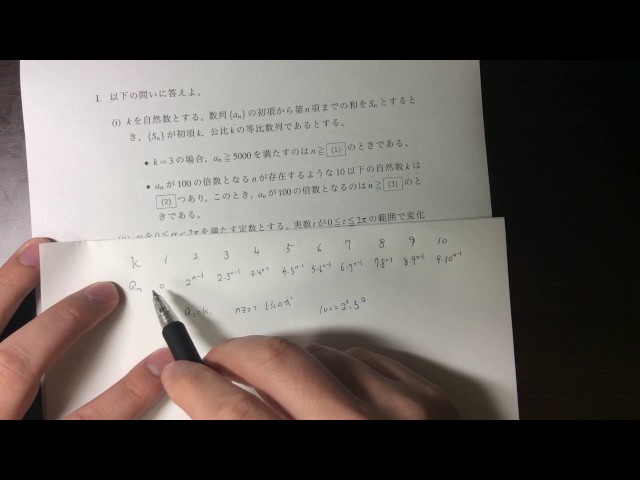 I. 以下の問いに答えよ。
(i) kを自然数とする。数列{aₙ}の初項から第n項までの和をSₙとすると
き，{Sₙ}が初項k，公比kの等比数列であるとする。
• k=3の場合，aₙ≧5000を満たすのはn≧(1)のときである。
• aₙが100の倍数となるnが存在するような10以下の自然数kは
(2)つあり，このとき，aₙが100の倍数となるのはn≧(3)のと
きである。
αを0≦α<2πを満たす定数とする。実数tが0≦t≦2πの範囲で変化
k 1 2 3 4 5 6 7 8 9 10
aₙ 0 2ⁿ⁻¹ 2·3ⁿ⁻¹ 3·4ⁿ⁻¹ 4·5ⁿ⁻¹ 5·6ⁿ⁻¹ 6·7ⁿ⁻¹ 7·8ⁿ⁻¹ 8·9ⁿ⁻¹ 9·10ⁿ⁻¹
a₁=k, n≧2で 100=2²·5²